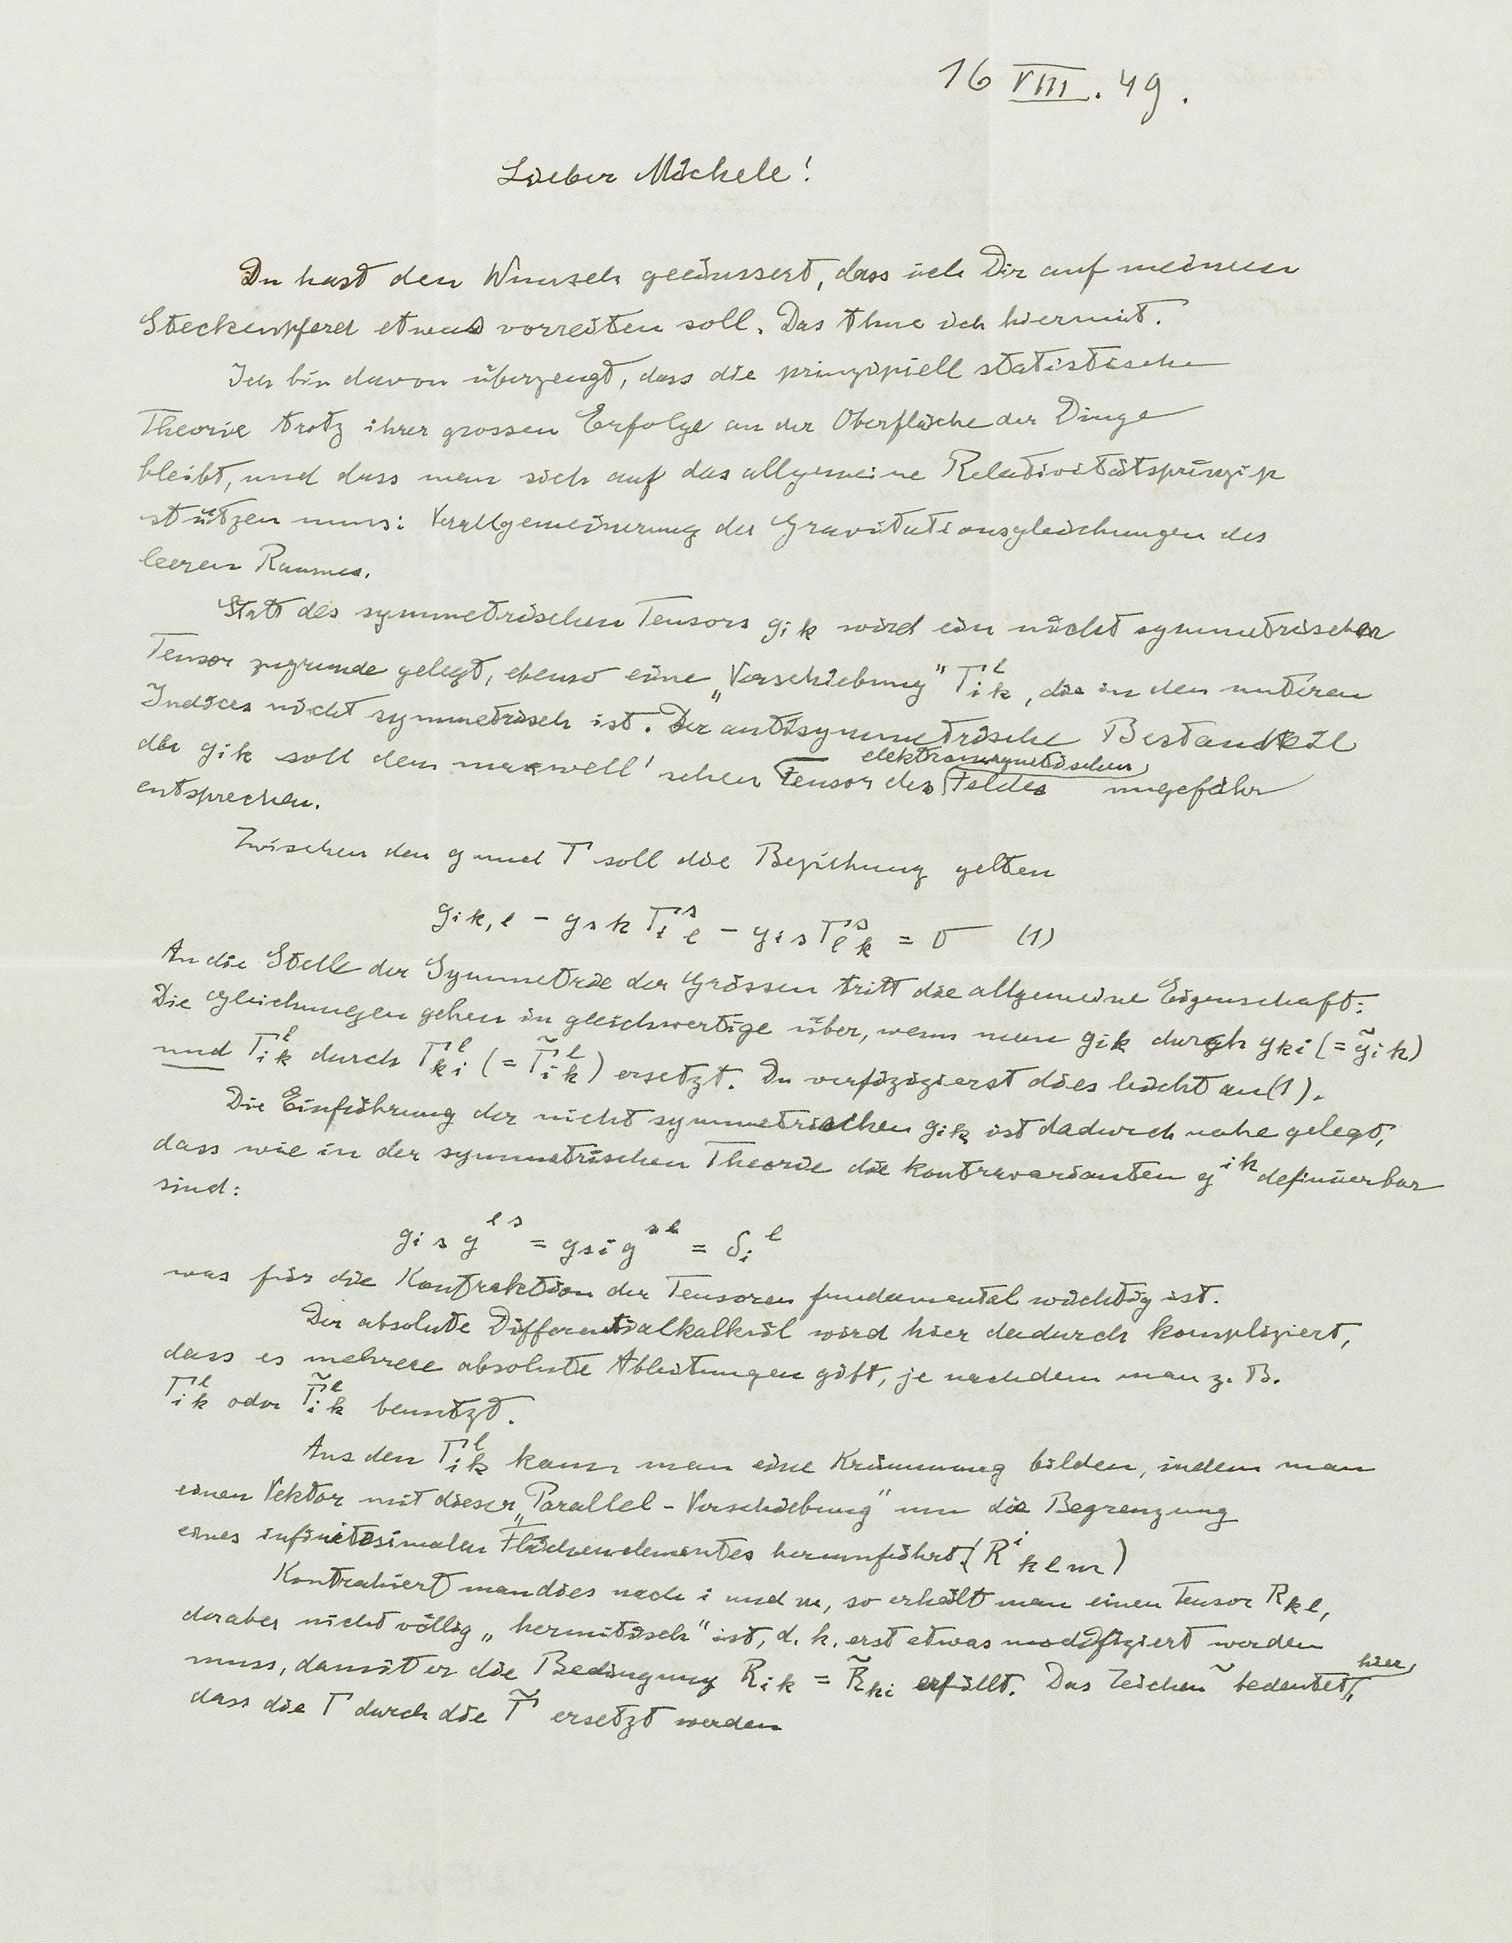 16 VIII. 49.
Lieber Michele!
Du hast den Wunsch geäussert, dass ich Dir auf meinem
Steckenpferd etwas vorreiten soll. Das thue ich hiermit.
Ich bin davon überzeugt, dass die prinzipiell statistische
Theorie trotz ihrer grossen Erfolge an der Oberfläche der Dinge
bleibt, und dass man sich auf das allgemeine Relativitätsprinzip
stützen muss: Verallgemeinerung der Gravitationsgleichungen des
leeren Raumes.
Statt des symmetrischen Tensors g_{ik} wird ein nicht symmetrischer
Tensor zugrunde gelegt, ebenso eine „Verschiebung" Γ_{ik}^{l}, die in den unteren
Indices nicht symmetrisch ist. Der antisymmetrische Bestandteil
der g_{ik} soll dem maxwell'schen Tensor des elektromagnetischen Feldes ungefähr
entsprechen.
Zwischen den g und Γ soll die Beziehung gelten
g_{ik,l} − g_{sk} Γ_{il}^{s} − g_{is} Γ_{lk}^{s} = 0 (1)
An die Stelle der Symmetrie der Grössen tritt die allgemeine Eigenschaft:
Die Gleichungen gehen in gleichwertige über, wenn man g_{ik} durch g_{ki} (= g̃_{ik})
und Γ_{ik}^{l} durch Γ_{ki}^{l} (= Γ̃_{ik}^{l}) ersetzt. Du verifizierst dies leicht an (1).
Die Einführung der nicht symmetrischen g_{ik} ist dadurch nahe gelegt,
dass wie in der symmetrischen Theorie die kontravarianten g^{ik} definierbar
sind:
g_{is} g^{ls} = g_{si} g^{sl} = δ_{i}^{l}
was für die Kontraktion der Tensoren fundamental wichtig ist.
Der absolute Differentialkalkül wird hier dadurch kompliziert,
dass es mehrere absolute Ableitungen gibt, je nachdem man z. B.
Γ_{ik}^{l} oder Γ̃_{ik}^{l} benutzt.
Aus den Γ_{ik}^{l} kann man eine Krümmung bilden, indem man
einen Vektor mit dieser „Parallel-Verschiebung" um die Begrenzung
eines infinitesimalen Flächenelementes herumführt (R^{i}_{klm})
Kontrahiert man dies nach i und m, so erhält man einen Tensor R_{kl},
der aber nicht völlig „hermitisch" ist, d. h. erst etwas modifiziert werden
muss, damit er die Bedingung R_{ik} = R̃_{ki} erfüllt. Das Zeichen ~ bedeutet hier,
dass die Γ durch die Γ̃ ersetzt werden